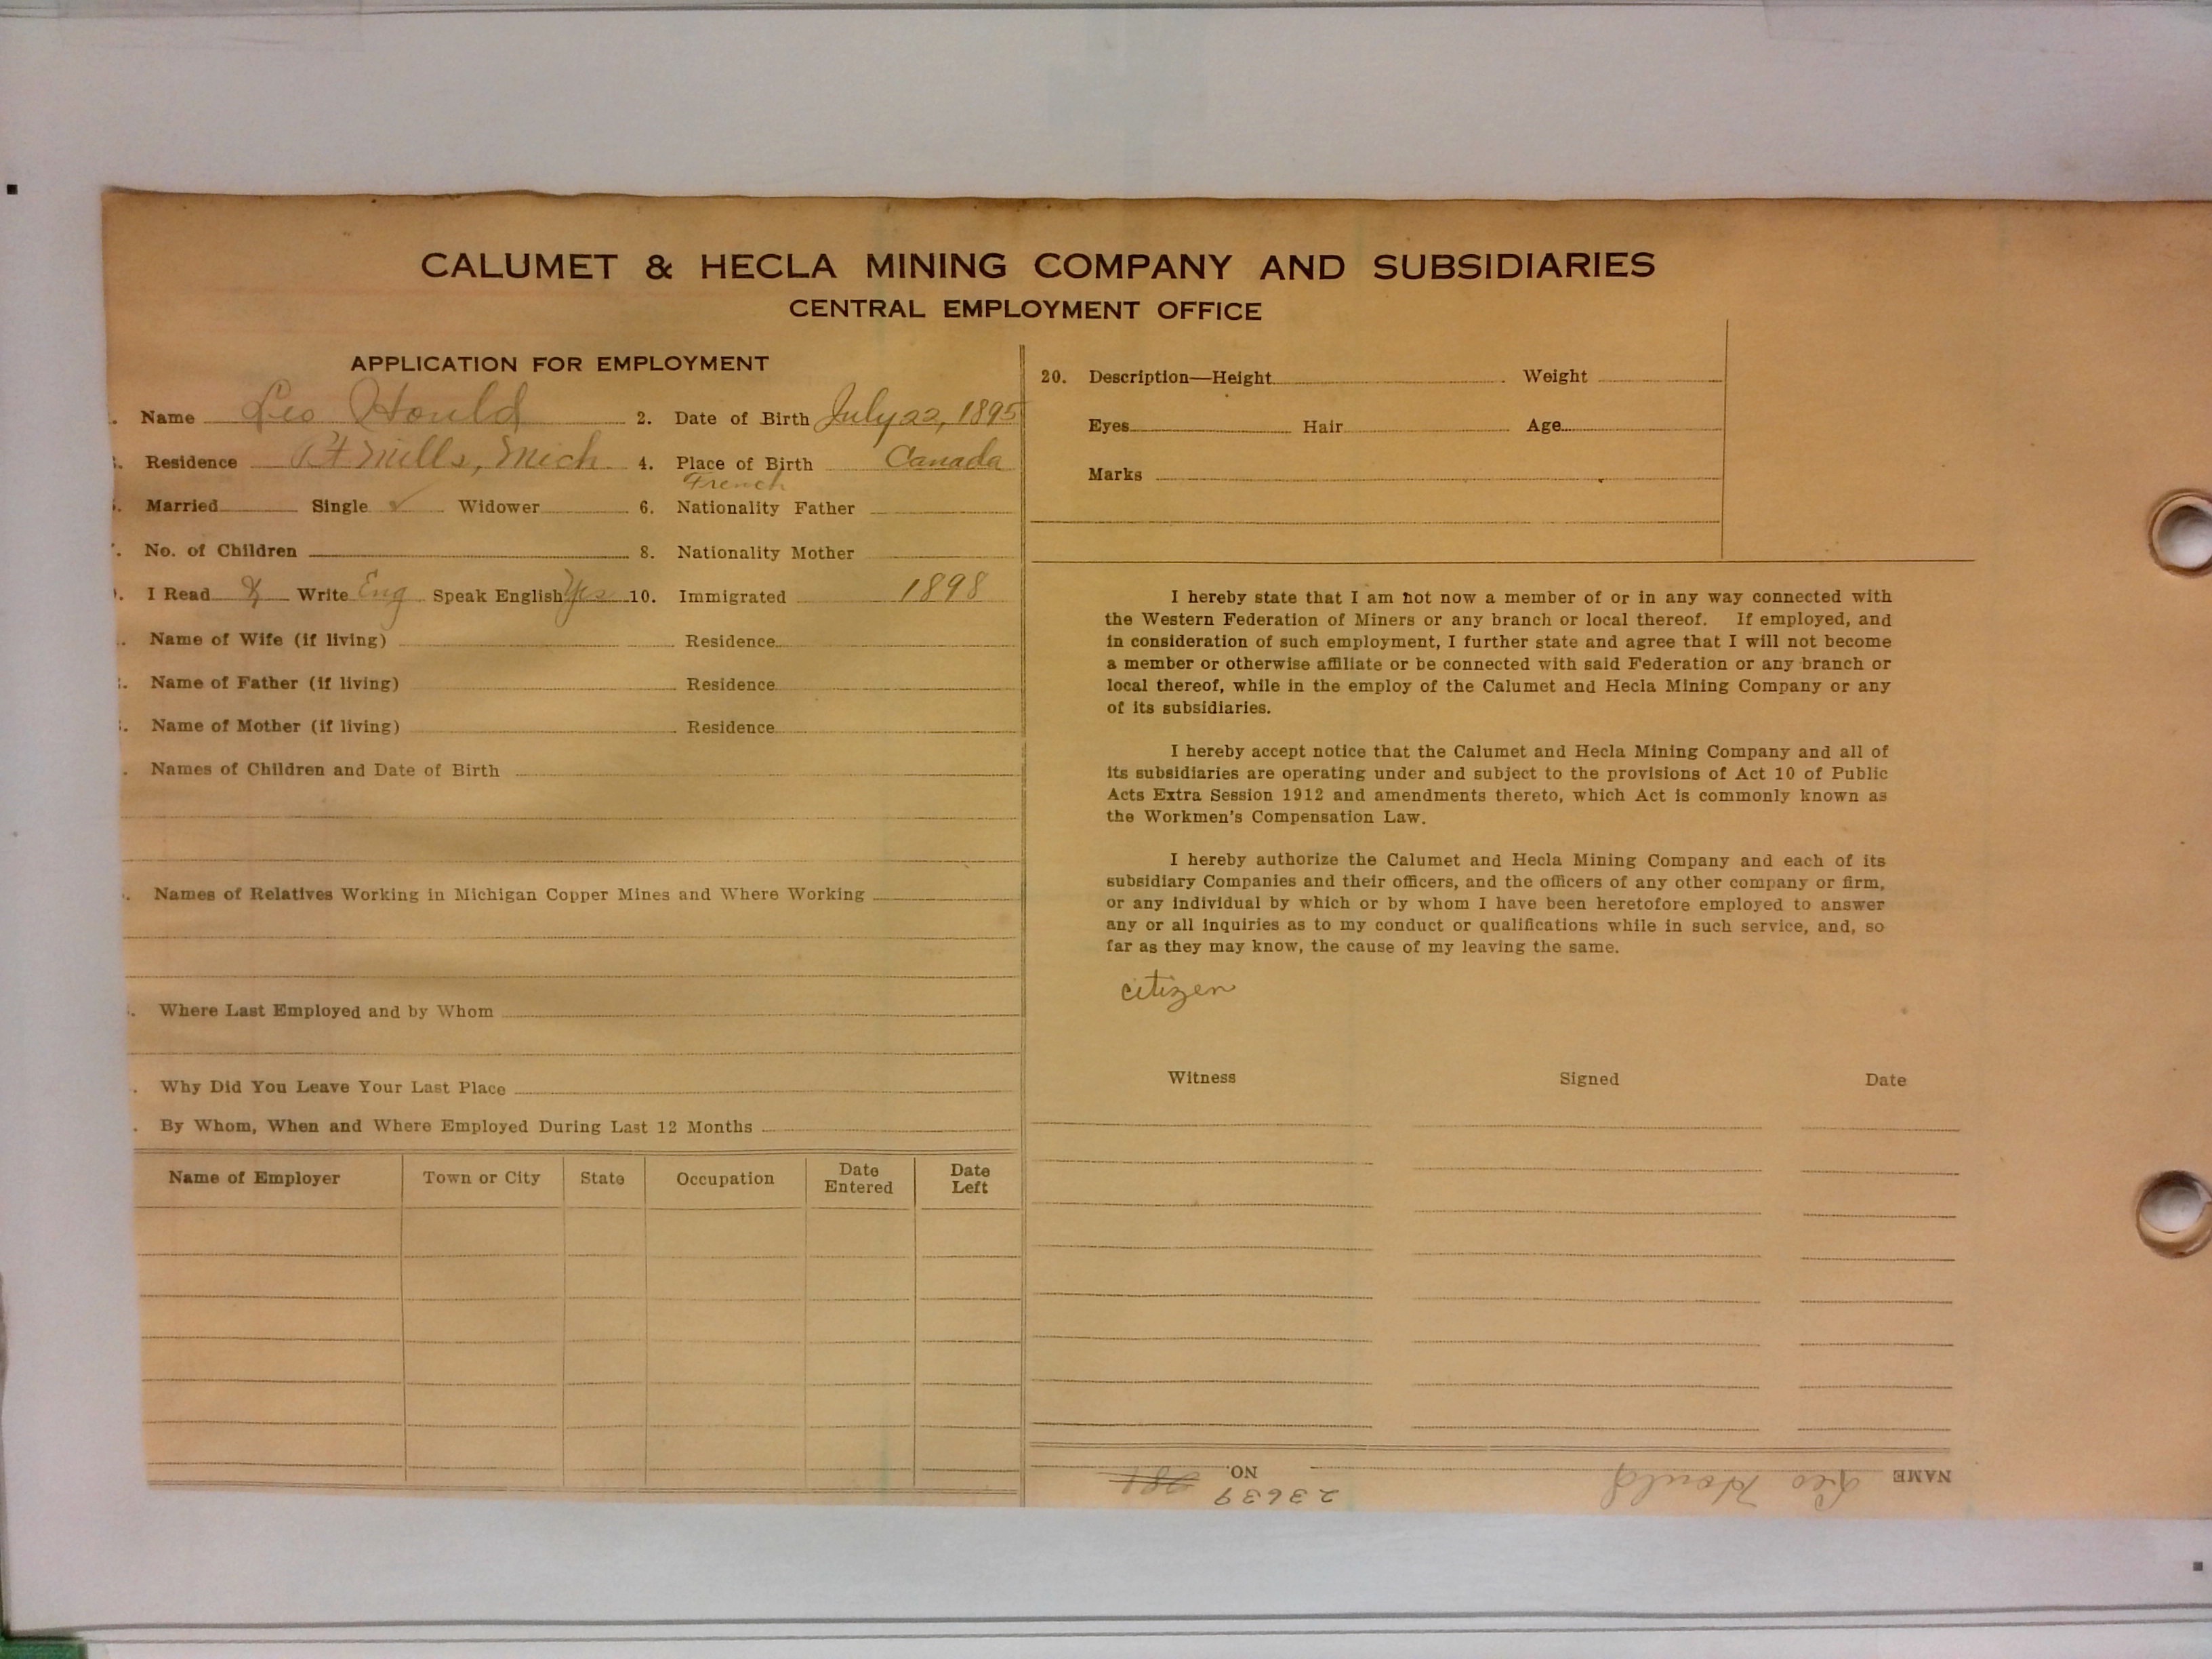 CALUMET & HECLA MINING COMPANY AND SUBSIDIARIES
CENTRAL EMPLOYMENT OFFICE
APPLICATION FOR EMPLOYMENT
. Name Leo Hould 2. Date of Birth July 22, 1895
. Residence Pt Mills, Mich. 4. Place of Birth Canada
French
. Married Single ✓ Widower 6. Nationality Father
. No. of Children 8. Nationality Mother
. I Read & Write Eng Speak English Yes 10. Immigrated 1898
. Name of Wife (if living) Residence
. Name of Father (if living) Residence
. Name of Mother (if living) Residence
. Names of Children and Date of Birth
. Names of Relatives Working in Michigan Copper Mines and Where Working
. Where Last Employed and by Whom
. Why Did You Leave Your Last Place
. By Whom, When and Where Employed During Last 12 Months
Name of Employer Town or City State Occupation Date Entered Date Left
20. Description—Height Weight
Eyes Hair Age
Marks
I hereby state that I am not now a member of or in any way connected with
the Western Federation of Miners or any branch or local thereof. If employed, and
in consideration of such employment, I further state and agree that I will not become
a member or otherwise affiliate or be connected with said Federation or any branch or
local thereof, while in the employ of the Calumet and Hecla Mining Company or any
of its subsidiaries.
I hereby accept notice that the Calumet and Hecla Mining Company and all of
its subsidiaries are operating under and subject to the provisions of Act 10 of Public
Acts Extra Session 1912 and amendments thereto, which Act is commonly known as
the Workmen's Compensation Law.
I hereby authorize the Calumet and Hecla Mining Company and each of its
subsidiary Companies and their officers, and the officers of any other company or firm,
or any individual by which or by whom I have been heretofore employed to answer
any or all inquiries as to my conduct or qualifications while in such service, and, so
far as they may know, the cause of my leaving the same.
citizen
Witness Signed Date
NAME Leo Hould NO.
23639